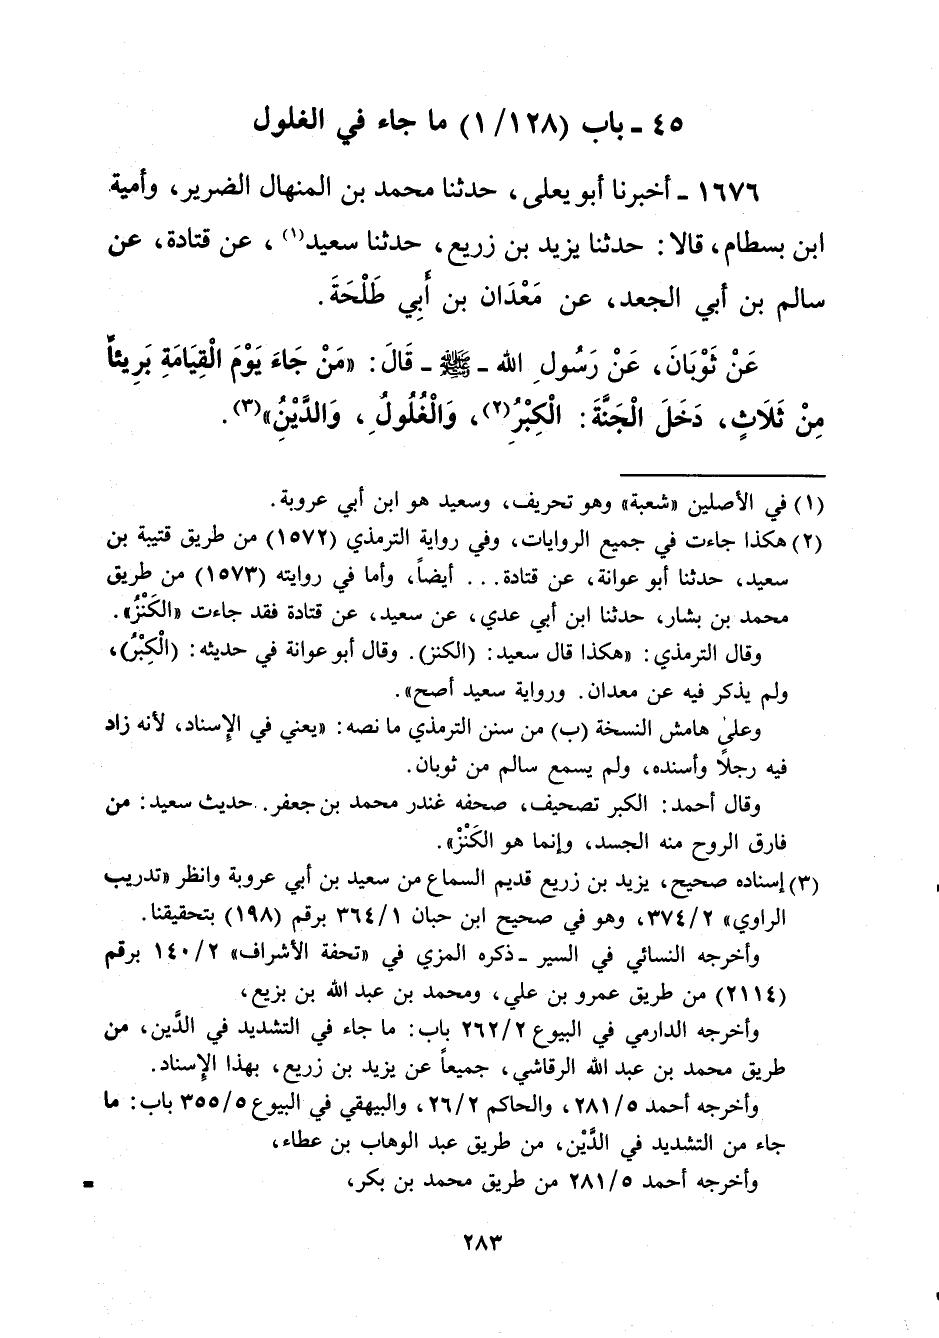 ٤٥ ـ باب (١/١٢٨) ما جاء في الغلول
١٦٧٦ ـ أخبرنا أبو يعلى، حدثنا محمد بن المنهال الضرير، وأمية
ابن بسطام، قالا: حدثنا يزيد بن زريع، حدثنا سعيد(١)، عن قتادة، عن
سالم بن أبي الجعد، عن مَعْدَان بن أَبي طَلْحَةَ.
عَنْ ثَوْبَانَ، عَنْ رَسُولِ الله ـ ﷺ ـ قَالَ: «مَنْ جَاءَ يَوْمَ الْقِيَامَةِ بَرِيئاً
مِنْ ثَلَاثٍ، دَخَلَ الْجَنَّةَ: الْكِبْرُِ(٢)، وَالْغُلُولُِ، وَالدَّيْنُِ»(٣).
(١) في الأصلين «شعبة» وهو تحريف، وسعيد هو ابن أبي عروبة.
(٢) هكذا جاءت في جميع الروايات، وفي رواية الترمذي (١٥٧٢) من طريق قتيبة بن
سعيد، حدثنا أبو عوانة، عن قتادة... أيضاً، وأما في روايته (١٥٧٣) من طريق
محمد بن بشار، حدثنا ابن أبي عدي، عن سعيد، عن قتادة فقد جاءت «الكَنْزُ».
وقال الترمذي: «هكذا قال سعيد: (الكنز). وقال أبو عوانة في حديثه: (الْكِبْرُ)،
ولم يذكر فيه عن معدان. ورواية سعيد أصح».
وعلىٰ هامش النسخة (ب) من سنن الترمذي ما نصه: «يعني في الإسناد، لأنه زاد
فيه رجلاً وأسنده، ولم يسمع سالم من ثوبان.
وقال أحمد: الكبر تصحيف، صحفه غندر محمد بن جعفر. حديث سعيد: من
فارق الروح منه الجسد، وإنما هو الكَنْزْ».
(٣) إسناده صحيح، يزيد بن زريع قديم السماع من سعيد بن أبي عروبة وانظر «تدريب
الراوي» ٣٧٤/٢، وهو في صحيح ابن حبان ٣٦٤/١ برقم (١٩٨) بتحقيقنا.
وأخرجه النسائي في السير ـ ذكره المزي في «تحفة الأشراف» ١٤٠/٢ برقم
(٢١١٤) من طريق عمرو بن علي، ومحمد بن عبد الله بن بزيع،
وأخرجه الدارمي في البيوع ٢٦٢/٢ باب: ما جاء في التشديد في الدَّين، من
طريق محمد بن عبد الله الرقاشي، جميعاً عن يزيد بن زريع، بهذا الإسناد.
وأخرجه أحمد ٢٨١/٥، والحاكم ٢٦/٢، والبيهقي في البيوع ٣٥٥/٥ باب: ما
جاء من التشديد في الدَّيْن، من طريق عبد الوهاب بن عطاء،
وأخرجه أحمد ٢٨١/٥ من طريق محمد بن بكر،
٢٨٣